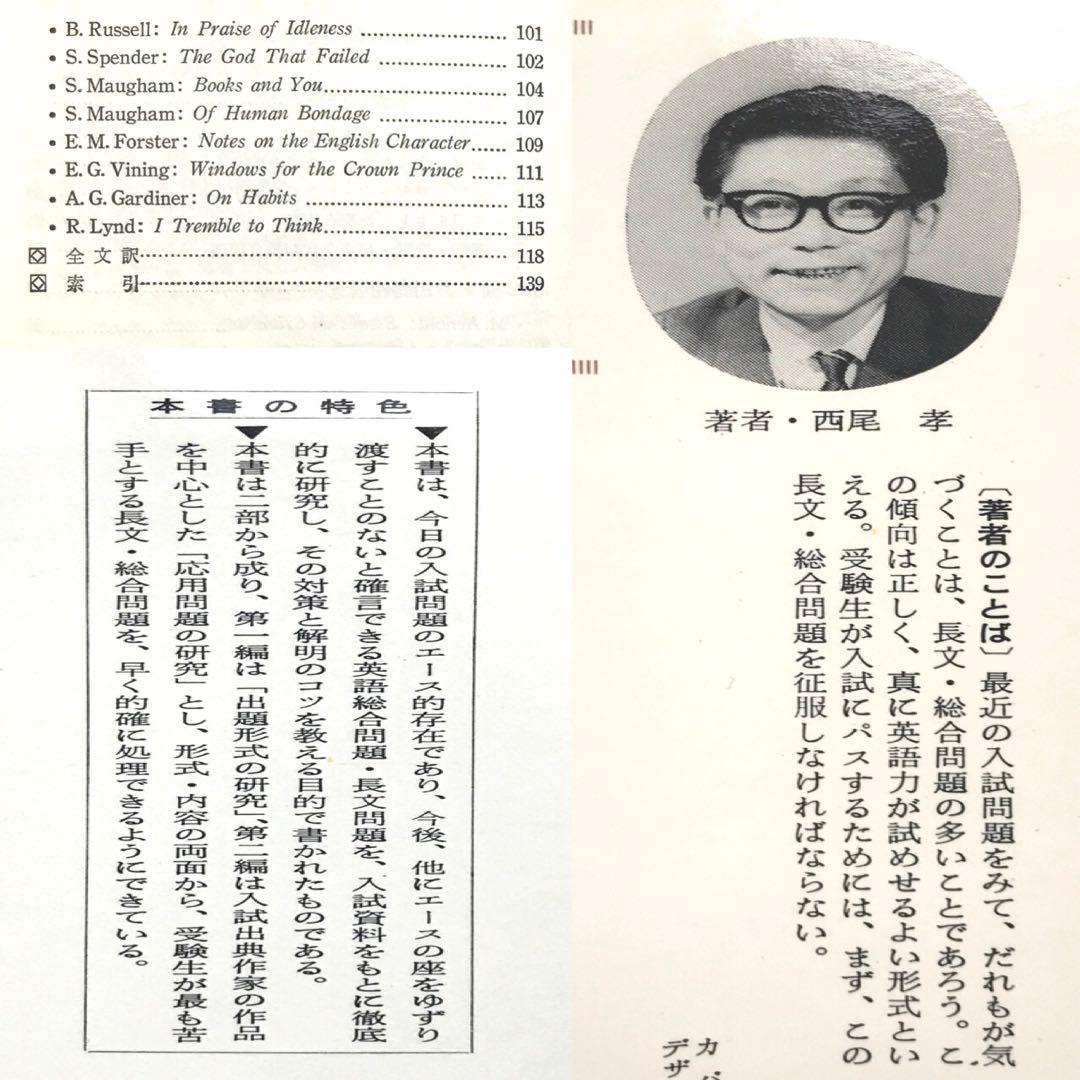 • B. Russell: In Praise of Idleness ........................ 101
• S. Spender: The God That Failed ..................... 102
• S. Maugham: Books and You.............................. 104
• S. Maugham: Of Human Bondage ..................... 107
• E. M. Forster: Notes on the English Character...... 109
• E. G. Vining: Windows for the Crown Prince ...... 111
• A. G. Gardiner: On Habits ................................. 113
• R. Lynd: I Tremble to Think.............................. 115
全文訳…………………………………………… 118
索　引…………………………………………… 139
本書の特色
▼本書は、今日の入試問題のエース的存在であり、今後、他にエースの座をゆずり
渡すことのないと確言できる英語総合問題・長文問題を、入試資料をもとに徹底
的に研究し、その対策と解明のコツを教える目的で書かれたものである。
▼本書は二部から成り、第一編は「出題形式の研究」、第二編は入試出典作家の作品
を中心とした「応用問題の研究」とし、形式・内容の両面から、受験生が最も苦
手とする長文・総合問題を、早く的確に処理できるようにできている。
著者・西尾　孝
〔著者のことば〕最近の入試問題をみて、だれもが気
づくことは、長文・総合問題の多いことであろう。こ
の傾向は正しく、真に英語力が試めせるよい形式とい
える。受験生が入試にパスするためには、まず、この
長文・総合問題を征服しなければならない。
カバ
デザ